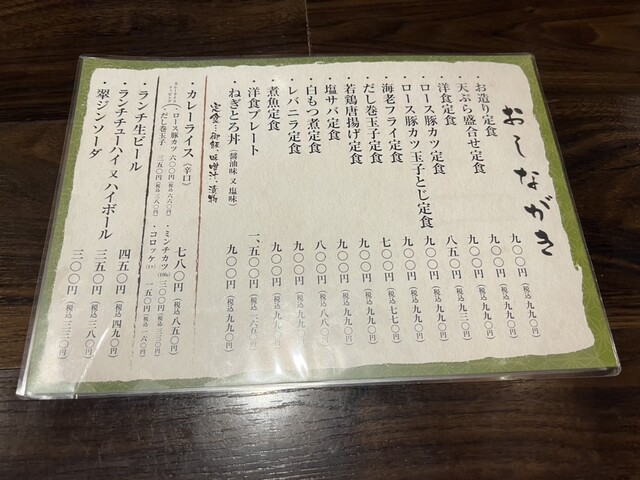 おしながき
・お造り定食 九〇〇円(税込九九〇円)
・天ぷら盛合せ定食 九〇〇円(税込九九〇円)
・洋食定食 九〇〇円(税込九九〇円)
・ロース豚カツ定食 八五〇円(税込九三〇円)
・ロース豚カツ玉子とじ定食 九〇〇円(税込九九〇円)
・海老フライ定食 九〇〇円(税込九九〇円)
・だし巻玉子定食 七〇〇円(税込七七〇円)
・若鶏唐揚げ定食 九〇〇円(税込九九〇円)
・塩サバ定食 九〇〇円(税込九九〇円)
・白もつ煮定食 八〇〇円(税込八八〇円)
・レバニラ定食 九〇〇円(税込九九〇円)
・煮魚定食 九〇〇円(税込九九〇円)
・洋食プレート 一、五〇〇円(税込一、六五〇円)
・ねぎとろ丼(醤油味又塩味) 九〇〇円(税込九九〇円)
定食…御飯、味噌汁、漬物
・カレーライス(辛口) 七八〇円(税込八五〇円)
・ロース豚カツ 六〇〇円(税込六六〇円) ・ミンチカツ 三〇〇円(税込三三〇円)
・だし巻玉子 三五〇円(税込三八〇円) ・コロッケ 一五〇円(税込一六〇円)
・ランチ生ビール 四五〇円(税込四九〇円)
・ランチチューハイ又ハイボール 三五〇円(税込三八〇円)
・翠ジンソーダ 三〇〇円(税込三三〇円)